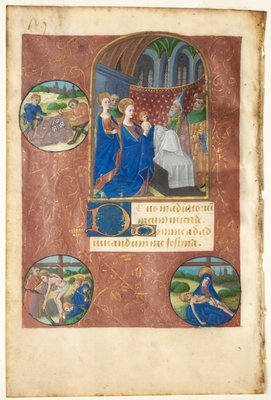 Deus in adiutoriũ
meum intende.
Domine ad ad
iuuandum me festina.